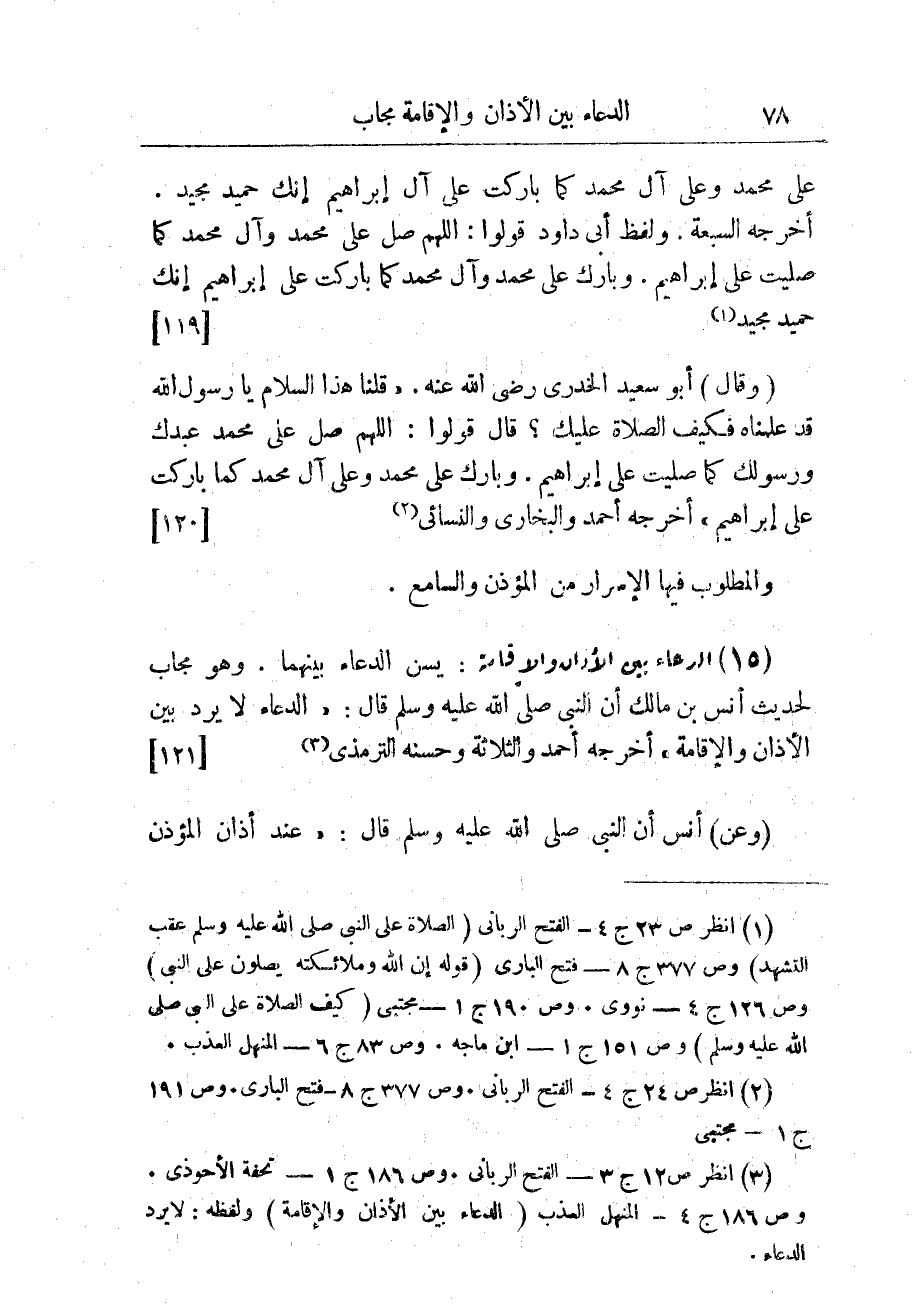 ٧٨ الدعاء بين الأذان والإقامة مجاب
على محمد وعلى آل محمد كما باركت على آل إبراهيم إنك حميد مجيد .
أخرجه السبعة . ولفظ أبى داود قولوا : اللهم صل على محمد وآل محمد كما
صليت على إبراهيم . وبارك على محمد وآل محمد كما باركت على إبراهيم إنك
حميد مجيد(١) [١١٩]
(وقال) أبو سعيد الخدرى رضى الله عنه . « قلنا هذا السلام يا رسول الله
قد علمناه فكيف الصلاة عليك ؟ قال قولوا : اللهم صل على محمد عبدك
ورسولك كما صليت على إبراهيم . وبارك على محمد وعلى آل محمد كما باركت
على إبراهيم » أخرجه أحمد والبخارى والنسائى(٢) [١٢٠]
والمطلوب فيها الإسرار من المؤذن والسامع .
(١٥) الدعاء بين الأذان والإقامة : يسن الدعاء بينهما . وهو مجاب
لحديث أنس بن مالك أن النبى صلى الله عليه وسلم قال : « الدعاء لا يرد بين
الأذان والإقامة » أخرجه أحمد والثلاثة وحسنه الترمذى(٣) [١٢١]
(وعن) أنس أن النبى صلى الله عليه وسلم قال : « عند أذان المؤذن
(١) انظر ص ٢٣ ج ٤ - الفتح الربانى ( الصلاة على النبى صلى الله عليه وسلم عقب
التشهد) وص ٣٧٧ ج ٨ — فتح البارى (قوله إن الله وملائكته يصلون على النبى)
وص ١٢٦ ج ٤ — نووى . وص ١٩٠ ج ١ — مجتبى ( كيف الصلاة على النبى صلى
الله عليه وسلم ) و ص ١٥١ ج ١ — ابن ماجه . وص ٨٣ ج ٦ — المنهل العذب .
(٢) انظر ص ٢٤ ج ٤ - الفتح الربانى . وص ٣٧٧ ج ٨ - فتح البارى . وص ١٩١
ج ١ — مجتبى
(٣) انظر ص ١٢ ج ٣ — الفتح الربانى . وص ١٨٦ ج ١ — تحفة الأحوذى .
و ص ١٨٦ ج ٤ - المنهل العذب ( الدعاء بين الأذان والإقامة ) ولفظه : لا يرد
الدعاء .